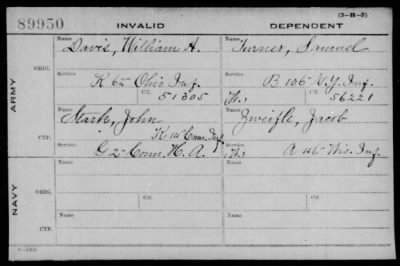 (3-H-5)
89950 INVALID DEPENDENT
Name Name
Davis, William A. Turner, Samuel
ORIG. Service Service
K 62 Ohio Inf. B 106 N.Y. Inf.
Ctf. 51305 (W.) Ctf. 56221
ARMY
Name Name
Stark, John Zweifle, Jacob
CTF. Service K 14 Conn. Inf. Service
G 2 Conn. H. A. (W.) A 46 Wis. Inf.
NAVY
Name Name
ORIG.
Service Ctf. Service Ctf.
Name Name
CTF.